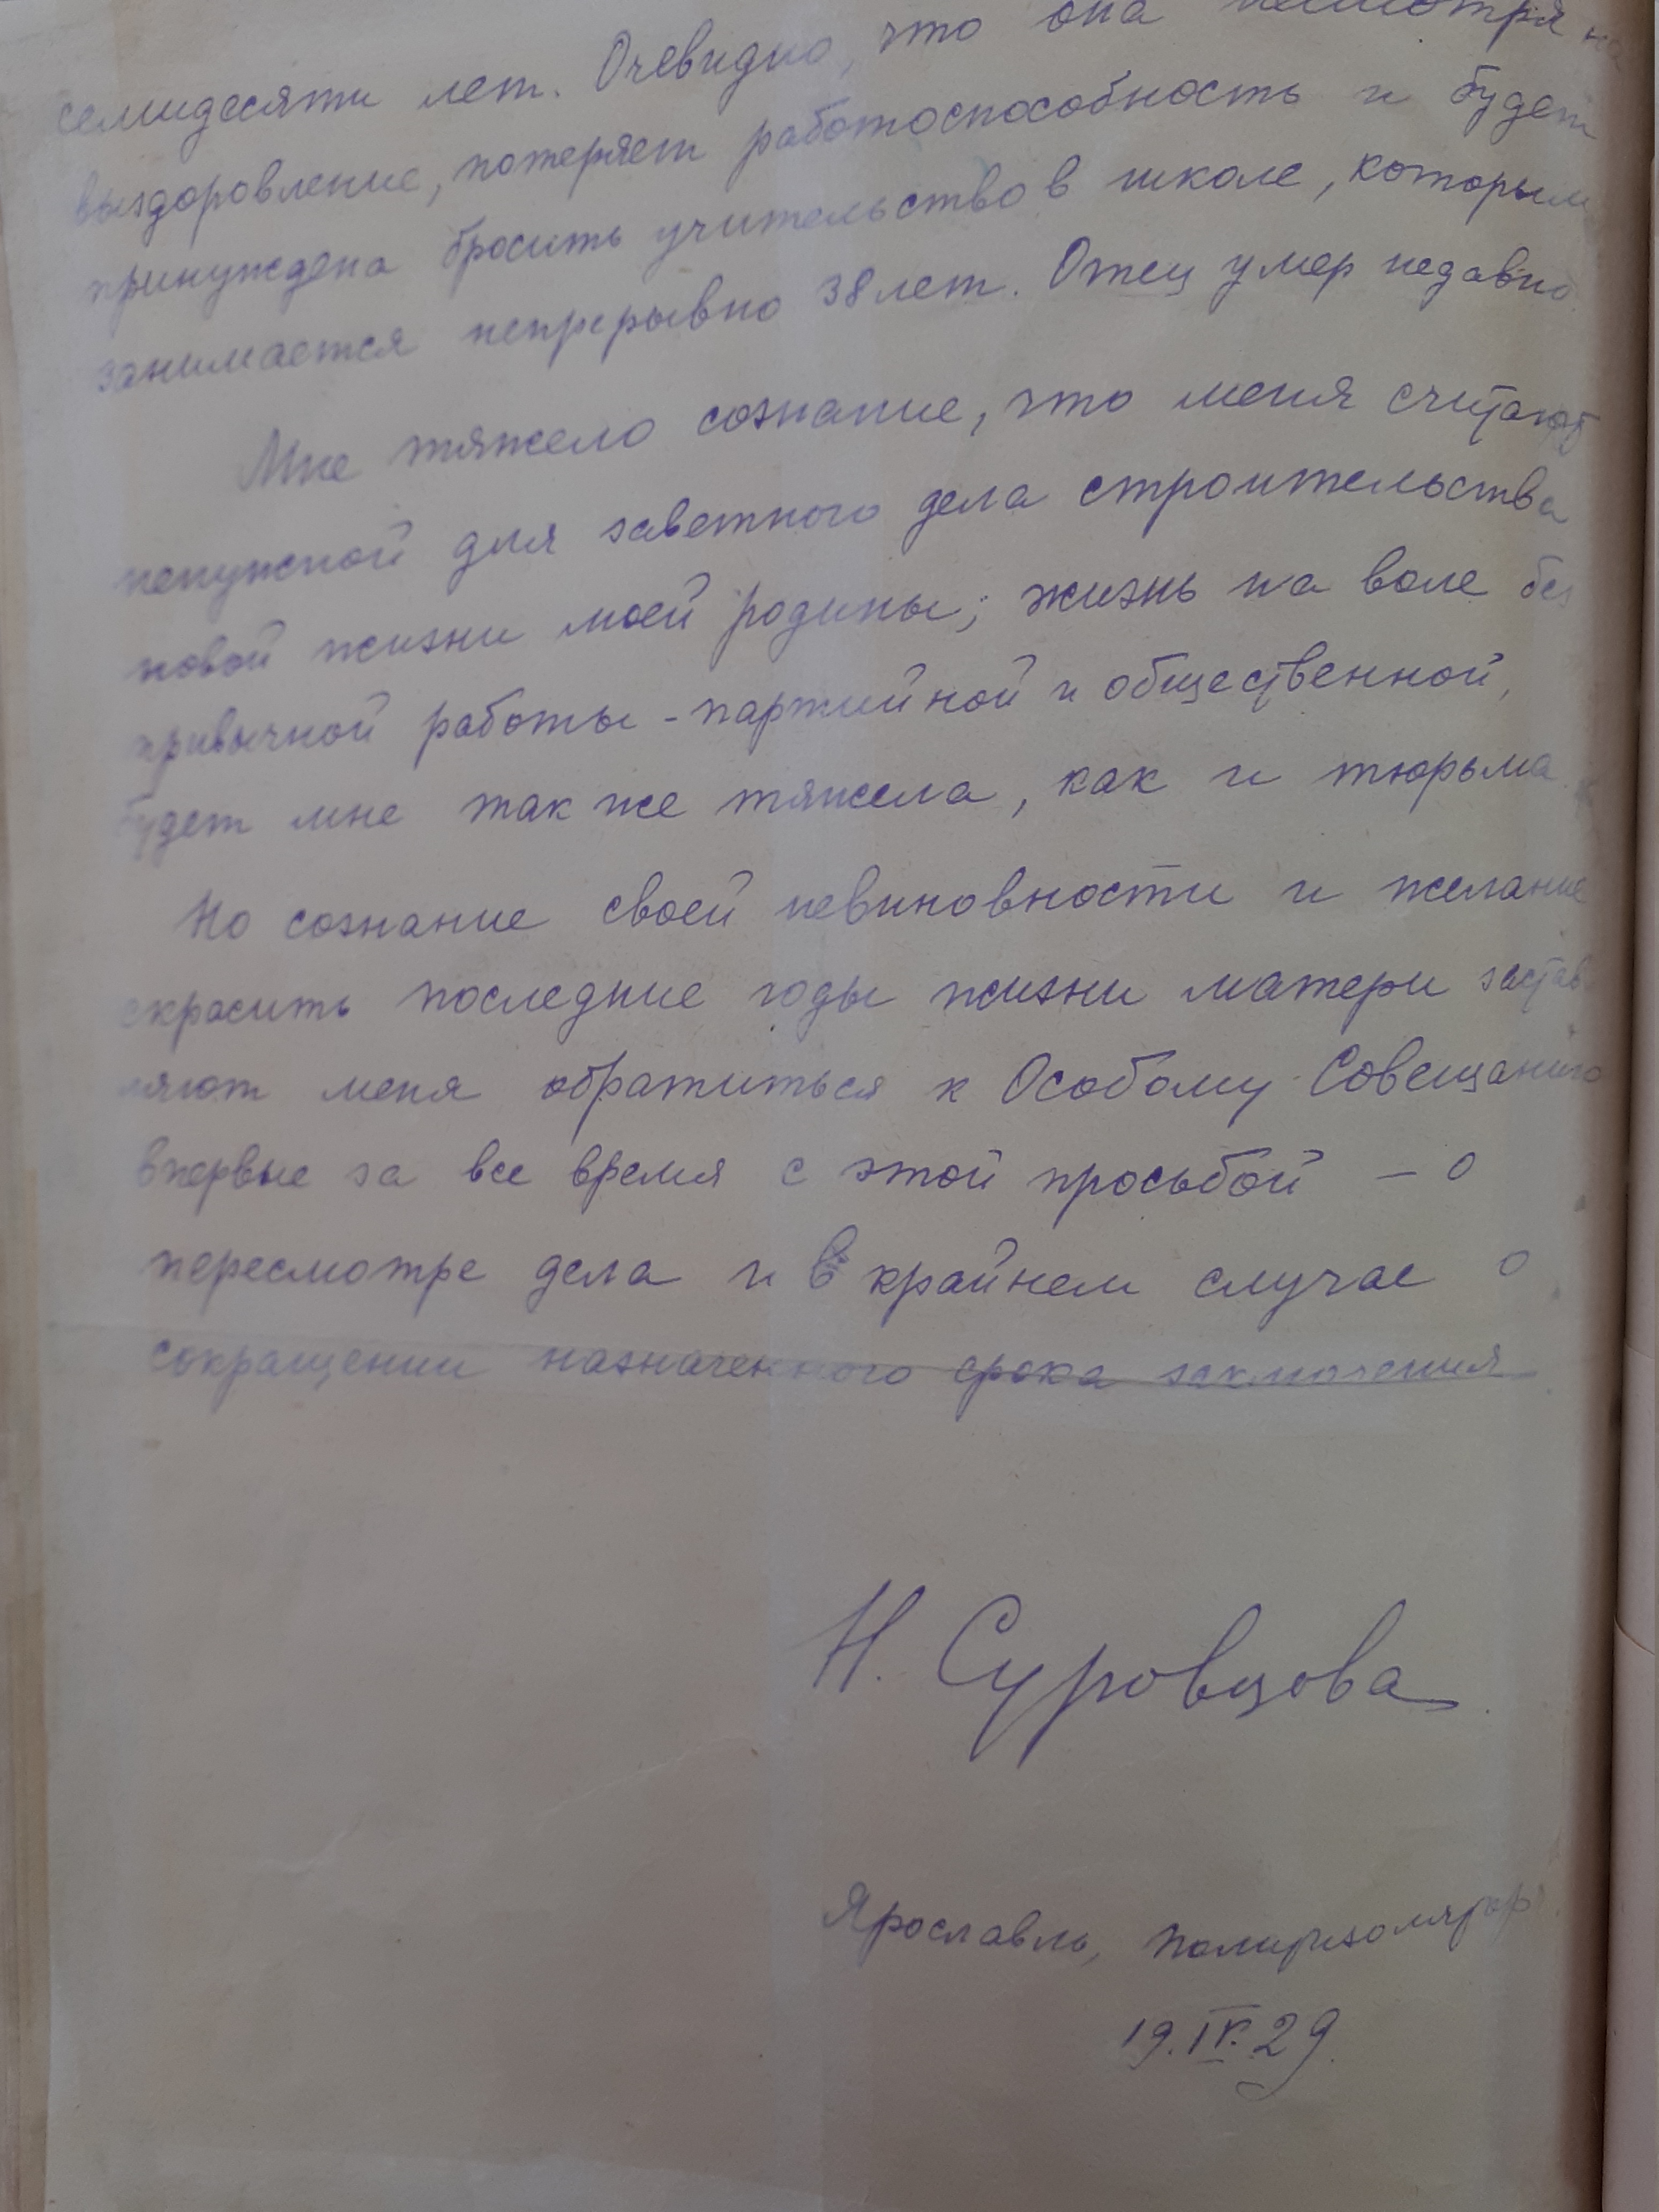 семидесяти лет. Очевидно, что она несмотря на
выздоровление, потеряет работоспособность и будет
принуждена бросить учительство в школе, которым
занимается непрерывно 38 лет. Отец умер недавно.
Мне тяжело сознание, что меня считают
ненужной для заветного дела строительства
новой жизни моей родины; жизнь на воле без
привычной работы - партийной и общественной,
будет мне так же тяжела, как и тюрьма.
Но сознание своей невиновности и желание
скрасить последние годы жизни матери застав-
ляют меня обратиться к Особому Совещанию
впервые за все время с этой просьбой – о
пересмотре дела и в крайнем случае о
сокращении назначенного срока заключения
Н. Суровцова.
Ярославль, Политизолятор.
19.IV.29.